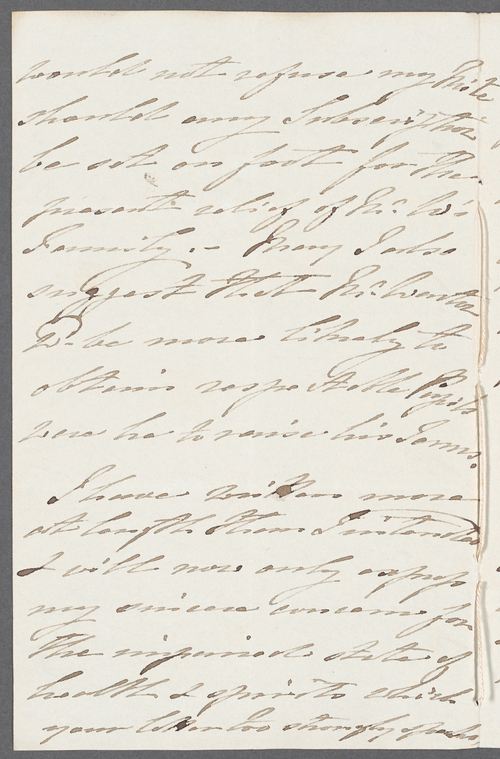 would not refuse my Mite
should any Subscription
be set on foot for the
present relief of Mr. W's
Family. – May I also
suggest that Mr. W
wd. be more likely to
obtain respectable Pupils
were he to raise his Terms.
I have written more
at length than I intended
& will now only express
my sincere concern for
the impaired state of
health & spirits which
your letter too strongly